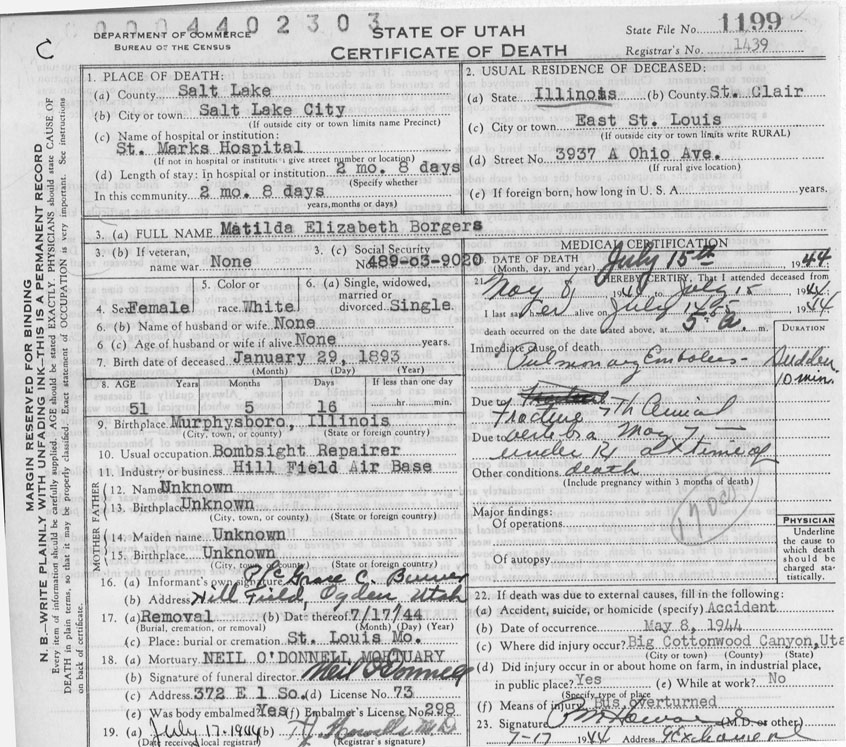 0004402303
DEPARTMENT OF COMMERCE
BUREAU OF THE CENSUS
C
STATE OF UTAH
CERTIFICATE OF DEATH
State File No. 1199
Registrar's No. 1439
MARGIN RESERVED FOR BINDING
N. B.—WRITE PLAINLY WITH UNFADING INK—THIS IS A PERMANENT RECORD
Every item of information should be carefully supplied. AGE should be stated EXACTLY. PHYSICIANS should state CAUSE OF
DEATH in plain terms, so that it may be properly classified. Exact statement of OCCUPATION is very important. See instructions
on back of certificate.
1. PLACE OF DEATH:
(a) County Salt Lake
(b) City or town Salt Lake City
(If outside city or town limits name Precinct)
(c) Name of hospital or institution:
St. Marks Hospital
(If not in hospital or institution give street number or location)
(d) Length of stay: In hospital or institution 2 mo. 8 days
(Specify whether
In this community 2 mo. 8 days
years, months or days)
2. USUAL RESIDENCE OF DECEASED:
(a) State Illinois (b) County St. Clair
(c) City or town East St. Louis
(If outside city or town limits write RURAL)
(d) Street No. 3937 A Ohio Ave.
(If rural give location)
(e) If foreign born, how long in U. S. A. years.
3. (a) FULL NAME Matilda Elizabeth Borgers
3. (b) If veteran,
name war None
3. (c) Social Security
No. 489-03-9020
4. Sex Female
5. Color or
race White
6. (a) Single, widowed,
married or
divorced Single
6. (b) Name of husband or wife None
6. (c) Age of husband or wife if alive None years.
7. Birth date of deceased January 29, 1893
(Month) (Day) (Year)
8. AGE Years Months Days If less than one day
51 5 16 hr. min.
9. Birthplace Murphysboro, Illinois
(City, town, or county) (State or foreign country)
10. Usual occupation Bombsight Repairer
11. Industry or business Hill Field Air Base
FATHER
12. Name Unknown
13. Birthplace Unknown
(City, town, or county) (State or foreign country)
MOTHER
14. Maiden name Unknown
15. Birthplace Unknown
(City, town, or county) (State or foreign country)
16. (a) Informant's own signature Grace C.
(b) Address Hill Field, Ogden Utah
17. (a) Removal (b) Date thereof 7/17/44
(Burial, cremation, or removal) (Month) (Day) (Year)
(c) Place: burial or cremation St. Louis Mo.
18. (a) Mortuary NEIL O'DONNELL MORTUARY
(b) Signature of funeral director Neil O'Donnell
(c) Address 372 E 1 So. (d) License No. 73
(e) Was body embalmed Yes (f) Embalmer's License No. 298
19. (a) July 17-1944 (b) M.D.
(Date received local registrar) (Registrar's signature)
MEDICAL CERTIFICATION
20. DATE OF DEATH
(Month, day, and year) July 15th 1944
21. I HEREBY CERTIFY, That I attended deceased from
May 8, 1944 to July 15 1944
I last saw her alive on July 1944
death occurred on the date stated above, at 5 a. m.
DURATION
Immediate cause of death
Pulmonary Embolus- Sudden
10 min.
Due to
fracture 7th Cervical
Due to vertebra May 7 —
under Rx at time of
Other conditions death
(Include pregnancy within 3 months of death)
Major findings:
Of operations
Of autopsy
PHYSICIAN
Underline
the cause to
which death
should be
charged sta-
tistically.
22. If death was due to external causes, fill in the following:
(a) Accident, suicide, or homicide (specify) Accident
(b) Date of occurrence May 8, 1944
(c) Where did injury occur? Big Cottonwood Canyon, Uta
(City or town) (County) (State)
(d) Did injury occur in or about home on farm, in industrial place,
in public place? Yes (e) While at work? No
(Specify type of place)
(f) Means of injury Bus overturned
23. Signature (M.D. or other)
7-17 1944 Address